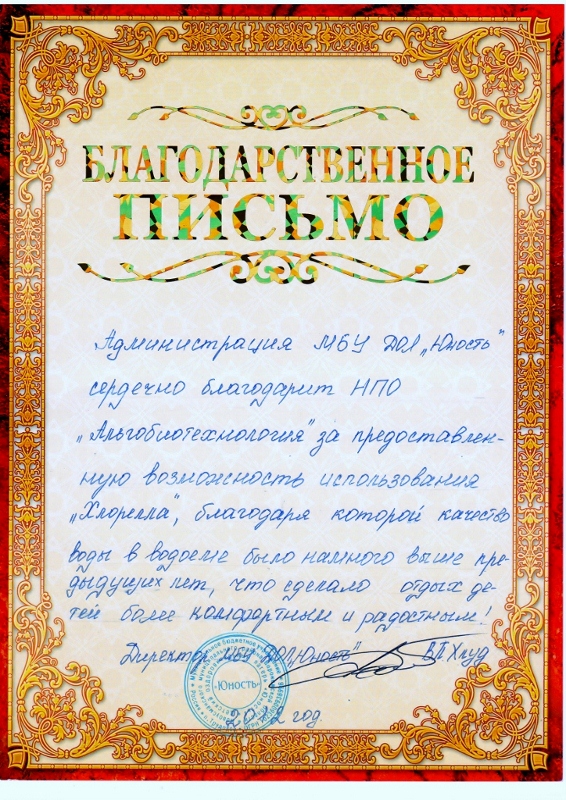 БЛАГОДАРСТВЕННОЕ
ПИСЬМО
Администрация МБУ ДОЛ „Юность"
сердечно благодарит НПО
„Альгобиотехнология" за предоставлен-
ную возможность использования
„Хлорелла", благодаря которой качество
воды в водоеме было намного выше пре-
дыдущих лет, что сделало отдых де-
тей более комфортным и радостным!
Директор МБУ ДОЛ „Юность" В.П.Хлуд
«Юность»
2012 год.